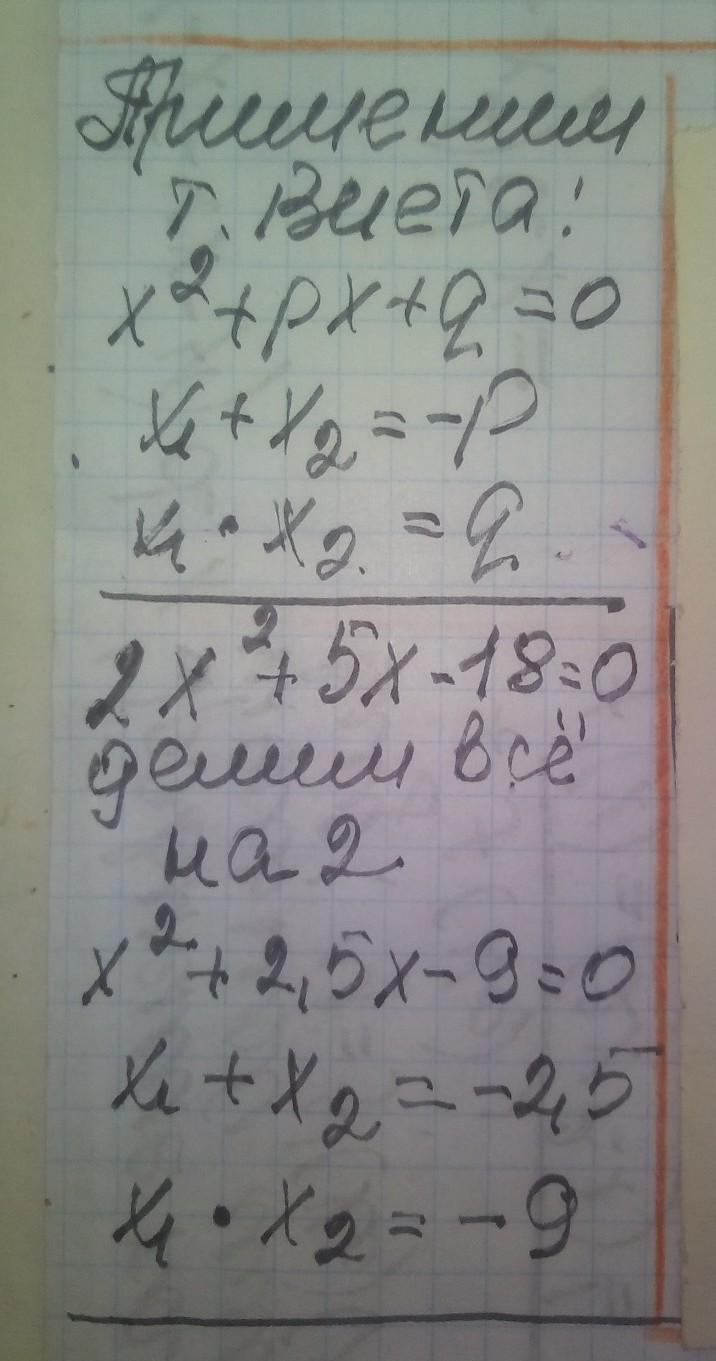 Применим
т. Виета:
x² + px + q = 0
x₁ + x₂ = -p
x₁ · x₂ = q
2x² + 5x - 18 = 0
делим всё
на 2
x² + 2,5x - 9 = 0
x₁ + x₂ = -2,5
x₁ · x₂ = -9